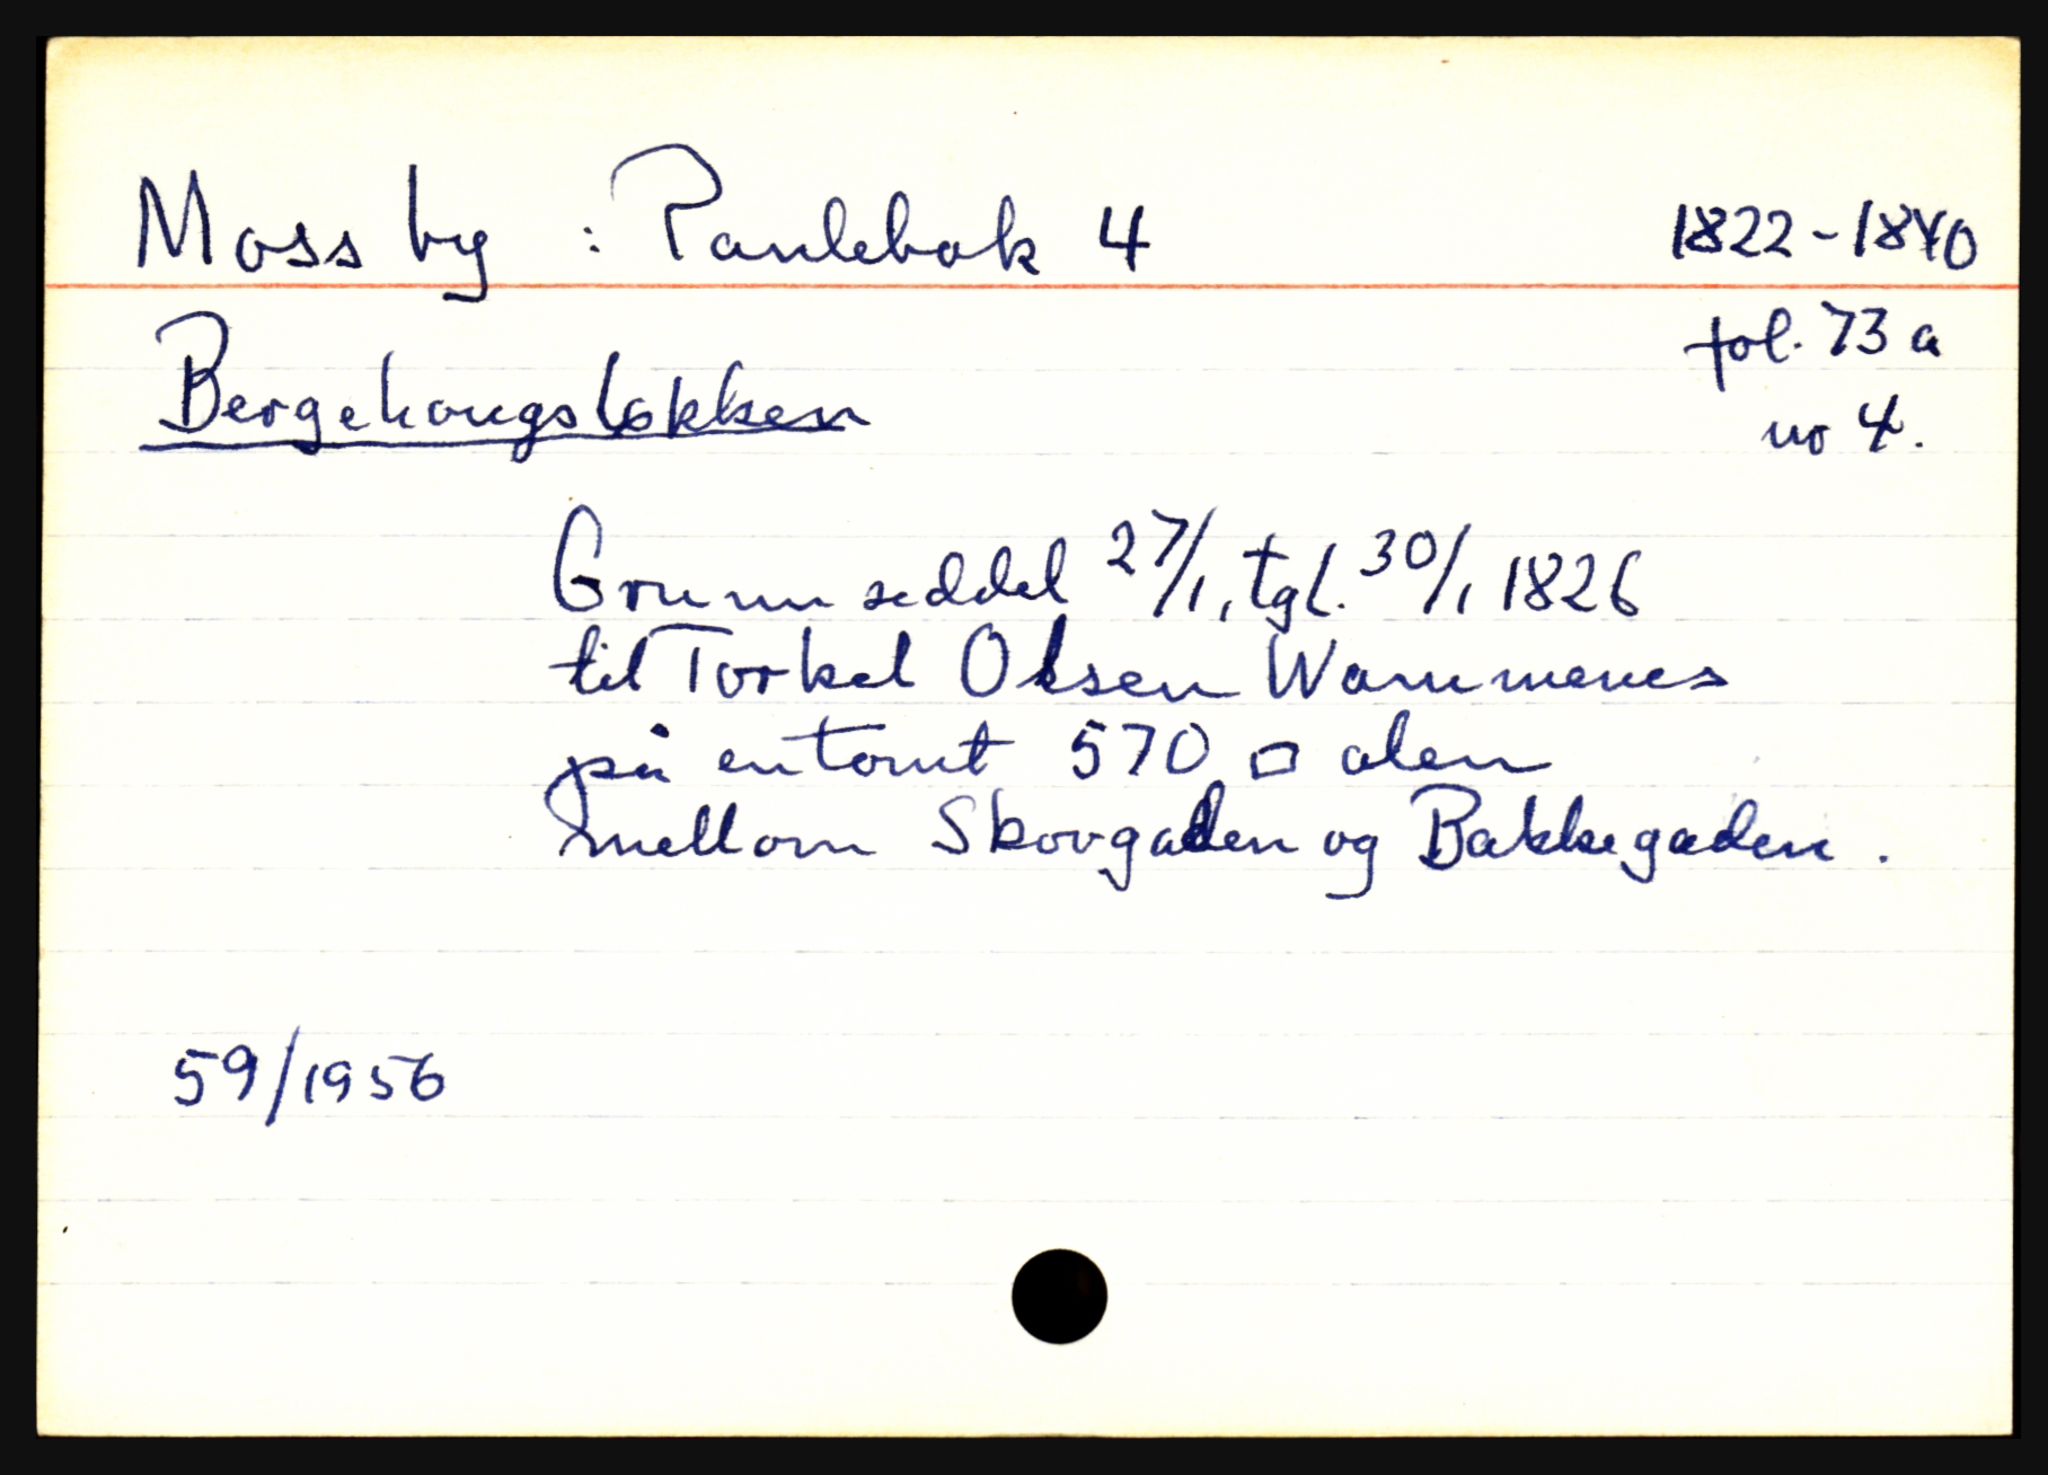 Moss by : Pantebok 4 1822-1840
fol. 73 a
Bergehougsløkken
no 4.
Grunnseddel 27/1, tgl. 30/1 1826
til Torkel Olsen Wammenes
på en tomt 570 □ alen
mellom Skovgaden og Bakkegaden.
59/1956